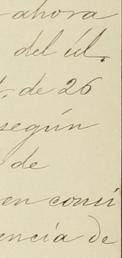 ahora
del úl.
de 26
según
de
en consi
encia de